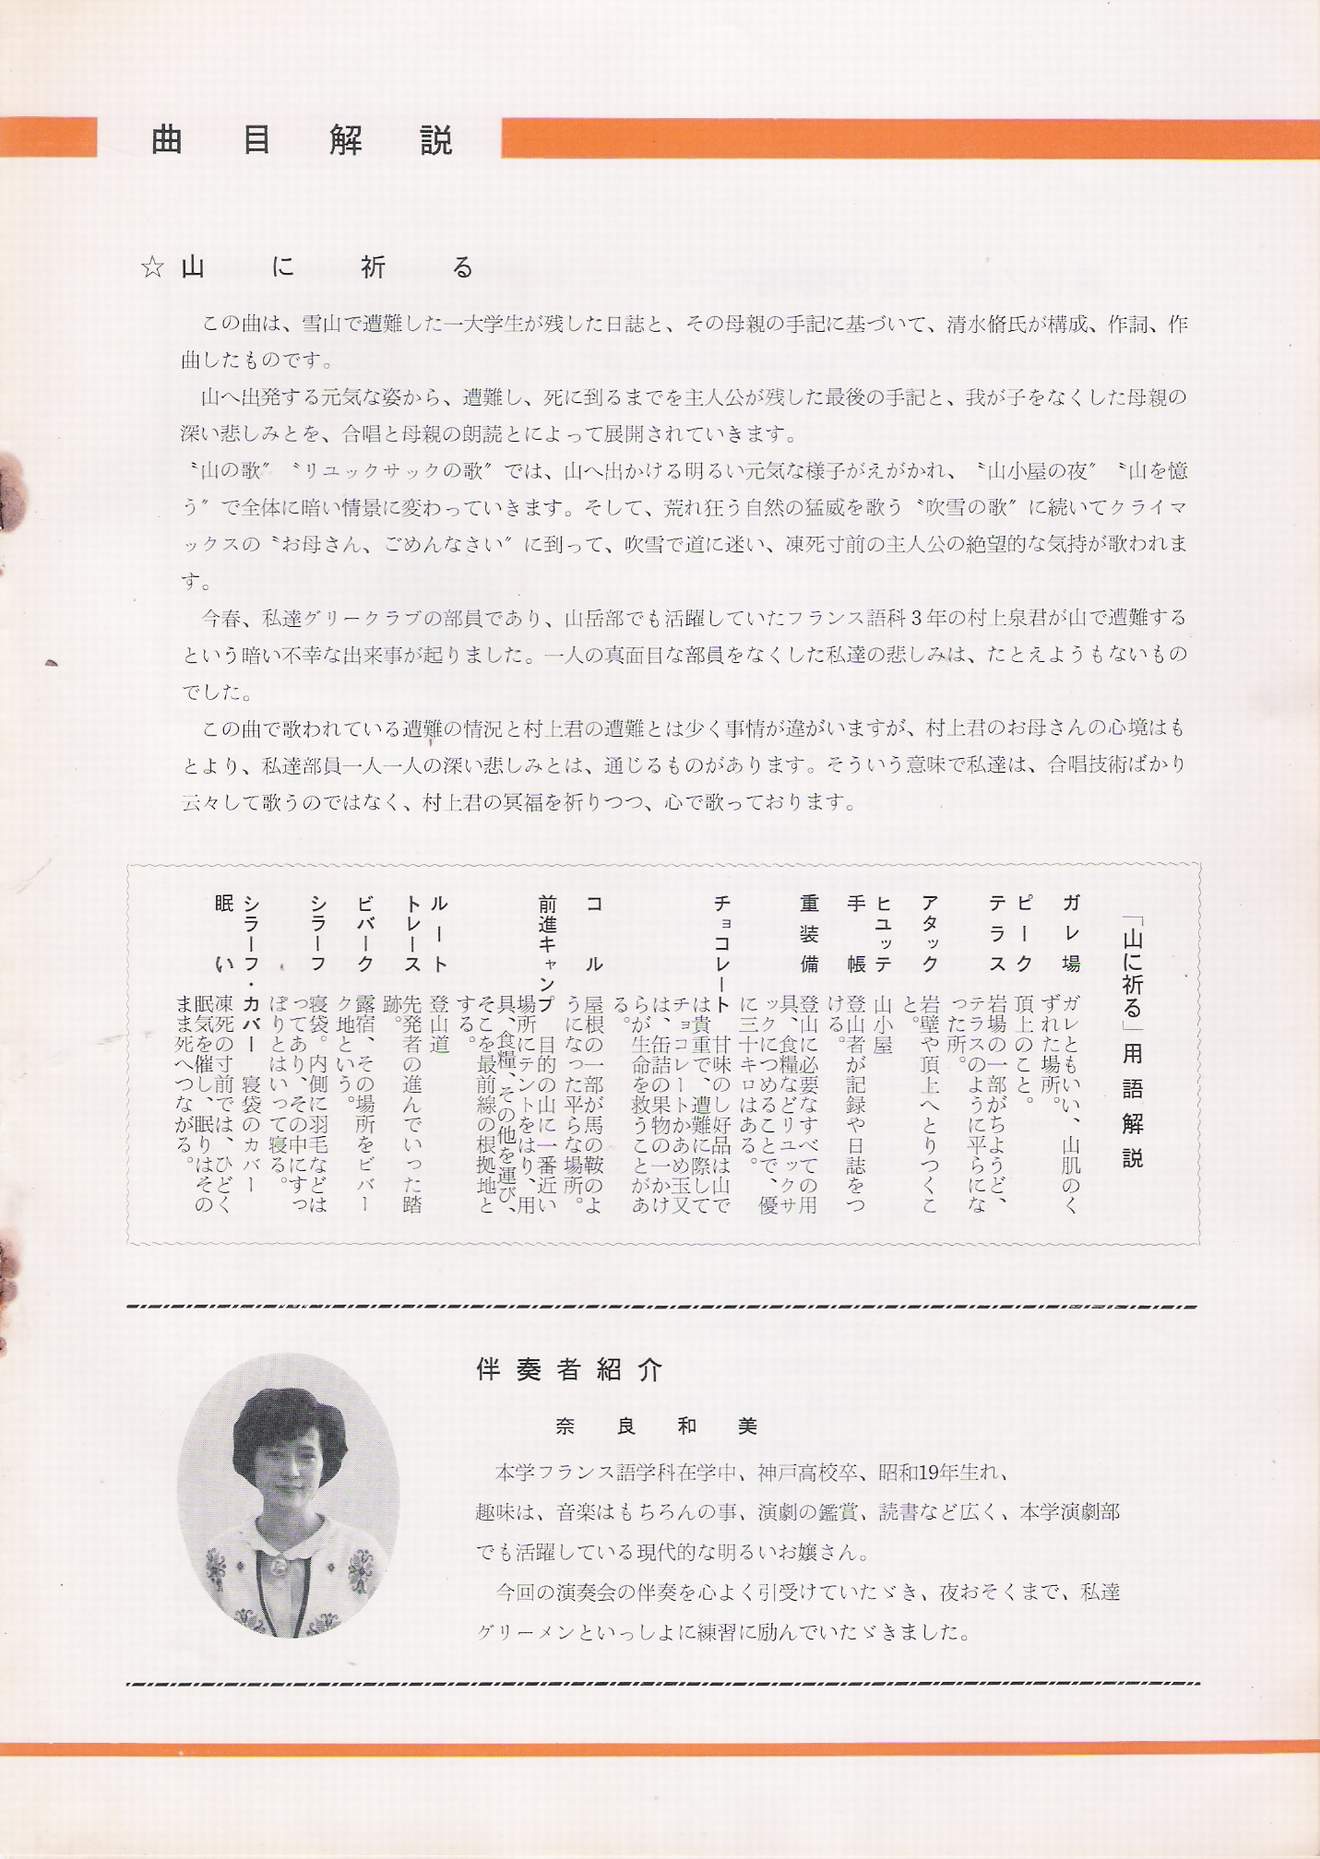 曲目解説
☆山に祈る
この曲は、雪山で遭難した一大学生が残した日誌と、その母親の手記に基づいて、清水脩氏が構成、作詞、作
曲したものです。
山へ出発する元気な姿から、遭難し、死に到るまでを主人公が残した最後の手記と、我が子をなくした母親の
深い悲しみとを、合唱と母親の朗読とによって展開されていきます。
〝山の歌〞〝リユックサックの歌〞では、山へ出かける明るい元気な様子がえがかれ、〝山小屋の夜〞〝山を憶
う〞で全体に暗い情景に変わっていきます。そして、荒れ狂う自然の猛威を歌う〝吹雪の歌〞に続いてクライマ
ックスの〝お母さん、ごめんなさい〞に到って、吹雪で道に迷い、凍死寸前の主人公の絶望的な気持が歌われま
す。
今春、私達グリークラブの部員であり、山岳部でも活躍していたフランス語科3年の村上泉君が山で遭難する
という暗い不幸な出来事が起りました。一人の真面目な部員をなくした私達の悲しみは、たとえようもないもの
でした。
この曲で歌われている遭難の情況と村上君の遭難とは少く事情が違がいますが、村上君のお母さんの心境はも
とより、私達部員一人一人の深い悲しみとは、通じるものがあります。そういう意味で私達は、合唱技術ばかり
云々して歌うのではなく、村上君の冥福を祈りつつ、心で歌っております。
「山に祈る」用語解説
ガレ場 ガレともいい、山肌のく
ずれた場所。
ピーク 頂上のこと。
テラス 岩場の一部がちようど、
テラスのように平らにな
った所。
アタック 岩壁や頂上へとりつくこ
と。
ヒュッテ 山小屋
手帳 登山者が記録や日誌をつ
ける。
重装備 登山に必要なすべての用
具、食糧などリユックサ
ックにつめることで、優
に三十キロはある。
チョコレート 甘味のし好品は山で
は貴重で、遭難に際して
チョコレートかあめ玉又
は、缶詰の果物の一かけ
らが生命を救うことがあ
る。
コル 屋根の一部が馬の鞍のよ
うになった平らな場所。
前進キャンプ 目的の山に一番近い
場所にテントをはり、用
具、食糧、その他を運び、
そこを最前線の根拠地と
する。
ルート 登山道
トレース 先発者の進んでいった踏
跡。
ビバーク 露宿、その場所をビバー
ク地という。
シラーフ 寝袋。内側に羽毛などは
ってあり、その中にすっ
ぽりとはいって寝る。
シラーフ・カバー 寝袋のカバー
眠い 凍死の寸前では、ひどく
眠気を催し、眠りはその
まま死へつながる。
伴奏者紹介
奈良和美
本学フランス語学科在学中、神戸高校卒、昭和19年生れ、
趣味は、音楽はもちろんの事、演劇の鑑賞、読書など広く、本学演劇部
でも活躍している現代的な明るいお嬢さん。
今回の演奏会の伴奏を心よく引受けていたゞき、夜おそくまで、私達
グリーメンといっしよに練習に励んでいたゞきました。